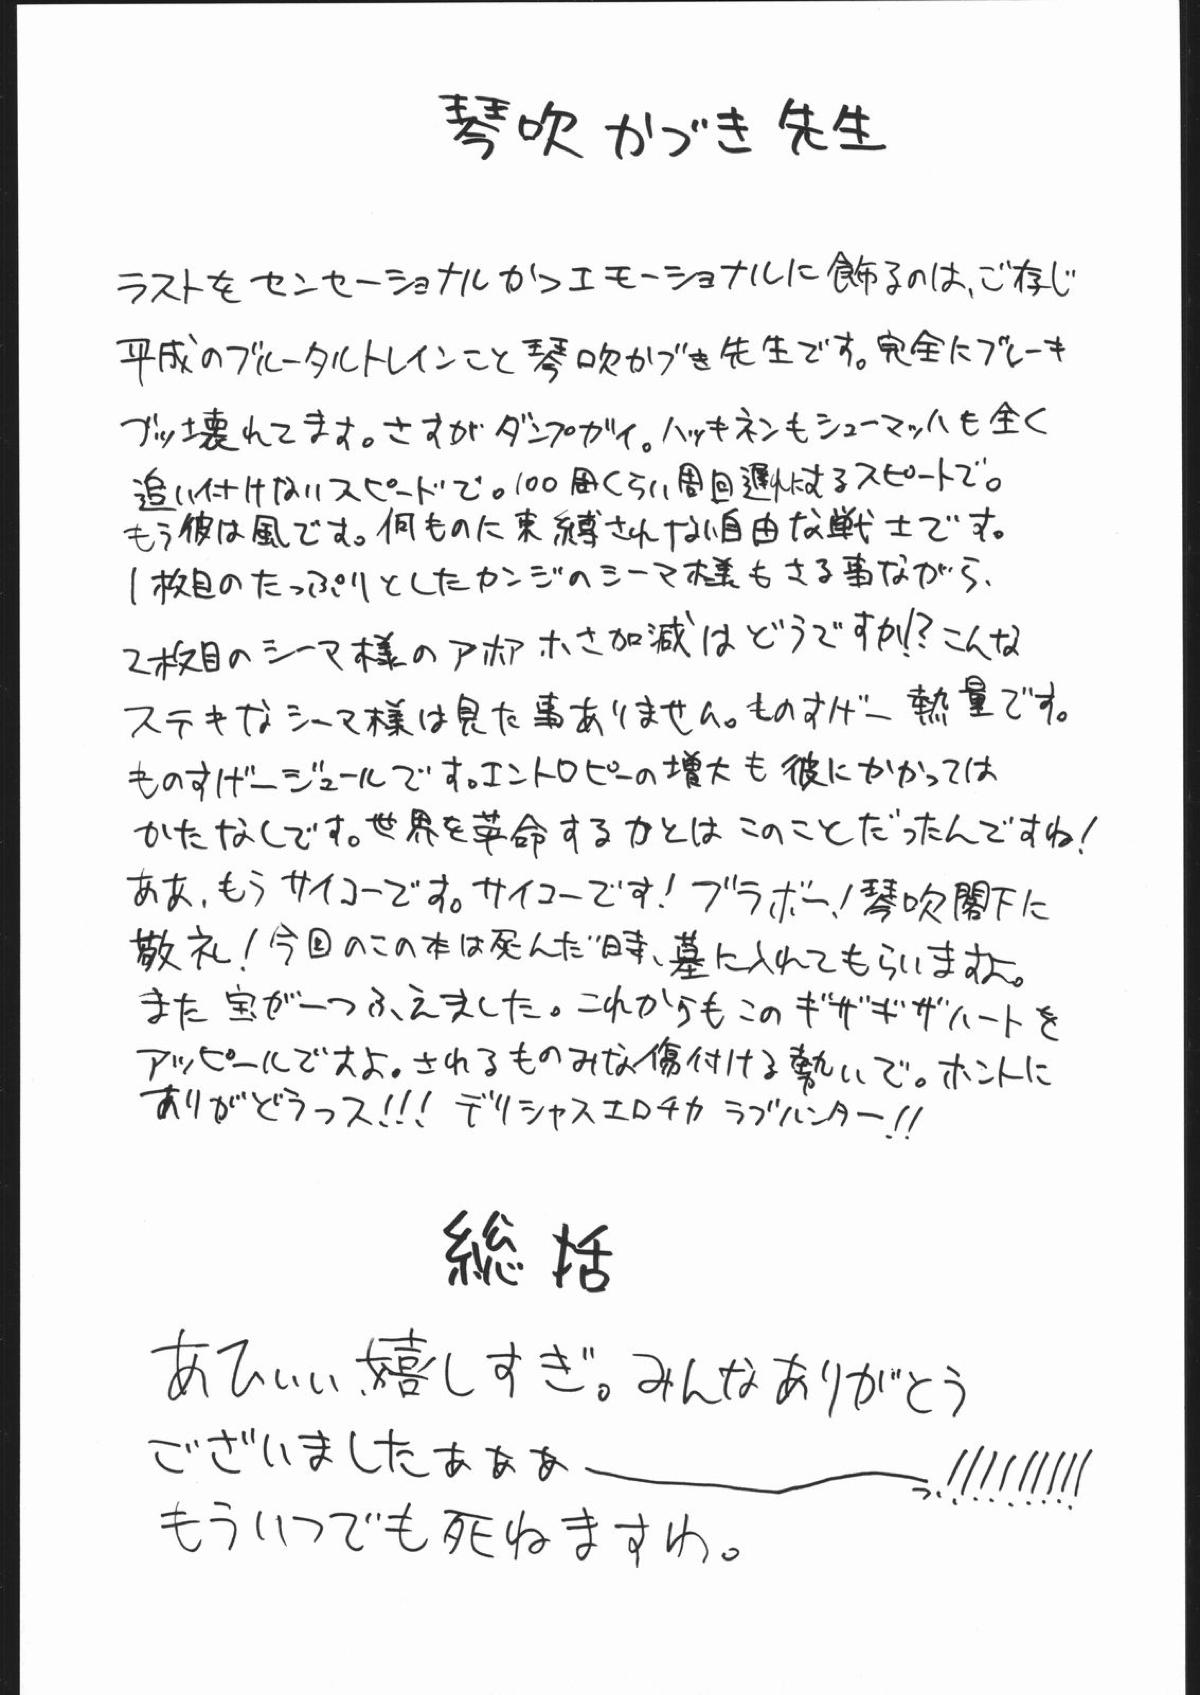 琴吹かづき先生
ラストをセンセーショナルかつエモーショナルに飾るのは、ご存じ
平成のブルータルトレインこと琴吹かづき先生です。完全にブレーキ
ブッ壊れてます。さすがダンプガイ。ハッキネンもシューマッハも全く
追い付けないスピードで。100周くらい周回遅れにするスピードで。
もう彼は風です。何ものにも束縛されない自由な戦士です。
1枚目のたっぷりとしたカンジのシーマ様もさる事ながら、
2枚目のシーマ様のアホアホさ加減はどうですか!?こんな
ステキなシーマ様は見た事ありません。ものすげー熱量です。
ものすげージュールです。エントロピーの増大も彼にかかっては
かたなしです。世界を革命する力とはこのことだったんですね!
ああ、もうサイコーです。サイコーです!ブラボー!琴吹閣下に
敬礼!今回のこの本は死んだ時、墓に入れてもらいますよ。
また宝が一つふえました。これからもこのギザギザハートを
アッピールですよ。されるものみな傷付ける勢いで。ホントに
ありがどうっス!!!デリシャスエロチカラブハンター!!
総括
あひぃぃ、嬉しすぎ。みんなありがとう
ございましたぁぁぁーっ!!!!!!!!!
もういつでも死ねますわ。